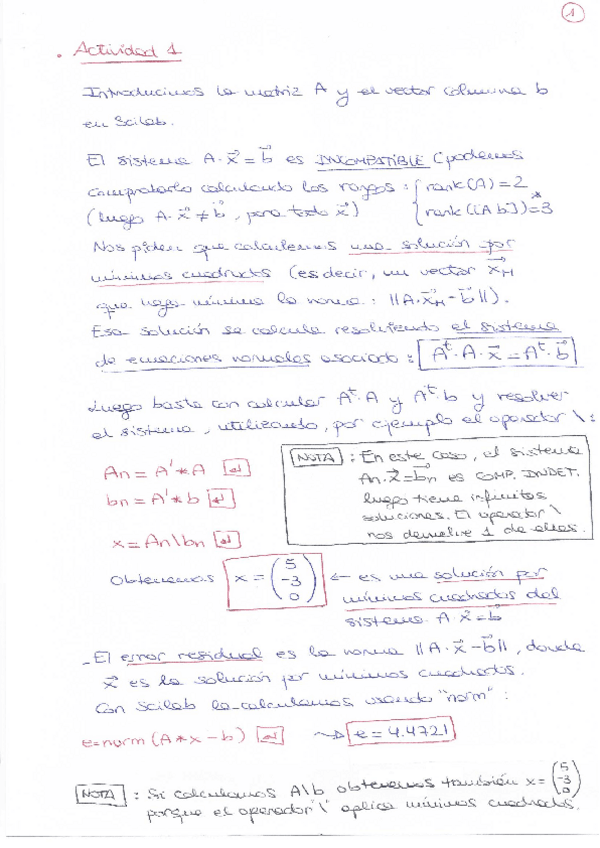 1
. Actividad 1
Introducimos la matriz A y el vector columna b
en Scilab.
El sistema A·x⃗ = b⃗ es INCOMPATIBLE (podemos
comprobarlo calculando los rangos : { rank(A)=2
(luego A·x⃗ ≠ b⃗, para todo x⃗) { rank([A b])=3 *
Nos piden que calculemos una solución por
mínimos cuadrados (es decir, un vector x⃗_M
que haga mínima la norma : ||A·x⃗_M - b⃗||).
Esa solución se calcula resolviendo el sistema
de ecuaciones normales asociado : Aᵗ·A·x⃗ = Aᵗ·b⃗
Luego basta con calcular Aᵗ·A y Aᵗ·b y resolver
el sistema, utilizando, por ejemplo el operador \ :
An = A'*A ↵
bn = A'*b ↵
x = An\bn ↵
NOTA : En este caso, el sistema
An·x⃗=b⃗n es COMP. INDET.
luego tiene infinitas
soluciones. El operador \
nos devuelve 1 de ellas.
Obtenemos x = (5 -3 0) ← es una solución por
mínimos cuadrados del
sistema A·x⃗=b⃗
- El error residual es la norma ||A·x⃗ - b⃗||, donde
x⃗ es la solución por mínimos cuadrados.
Con Scilab la calculamos usando "norm" :
e=norm(A*x-b) ↵ ⇝ e = 4.4721
NOTA : Si calculamos A\b obtenemos también x = (5 -3 0)
porque el operador "\" aplica mínimos cuadrados.